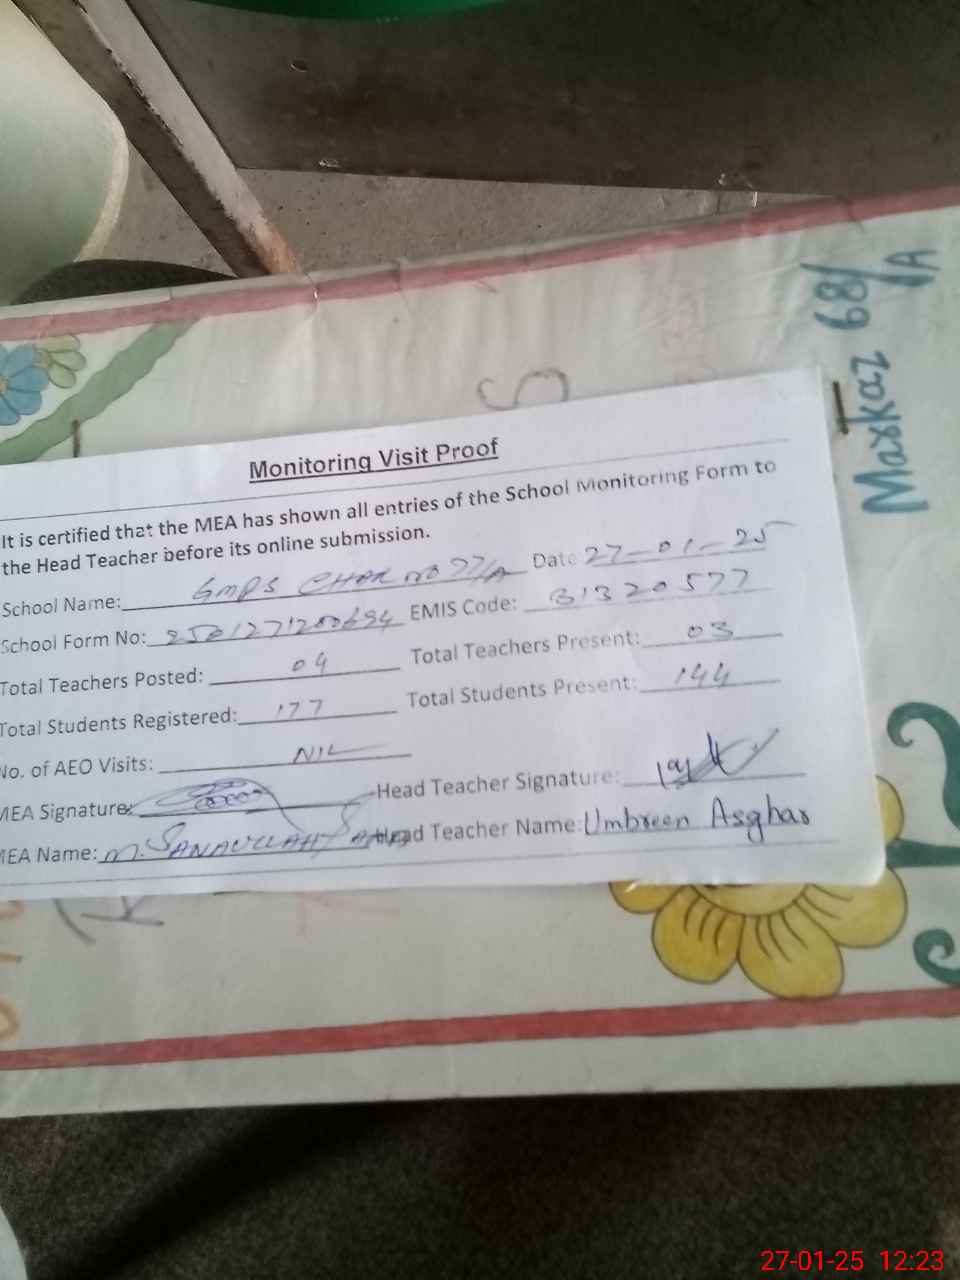 Markaz 68/A
S
Monitoring Visit Proof
It is certified that the MEA has shown all entries of the School Monitoring Form to
the Head Teacher before its online submission.
School Name: GMPS CHAK NO 77/A Date 27-01-25
School Form No: EMIS Code: 31320577
Total Teachers Posted: 04 Total Teachers Present: 03
Total Students Registered: 177 Total Students Present: 144
No. of AEO Visits: NIL
MEA Signature: Head Teacher Signature:
MEA Name: M. SANAULLAH Head Teacher Name: Umbreen Asghar
27-01-25 12:23